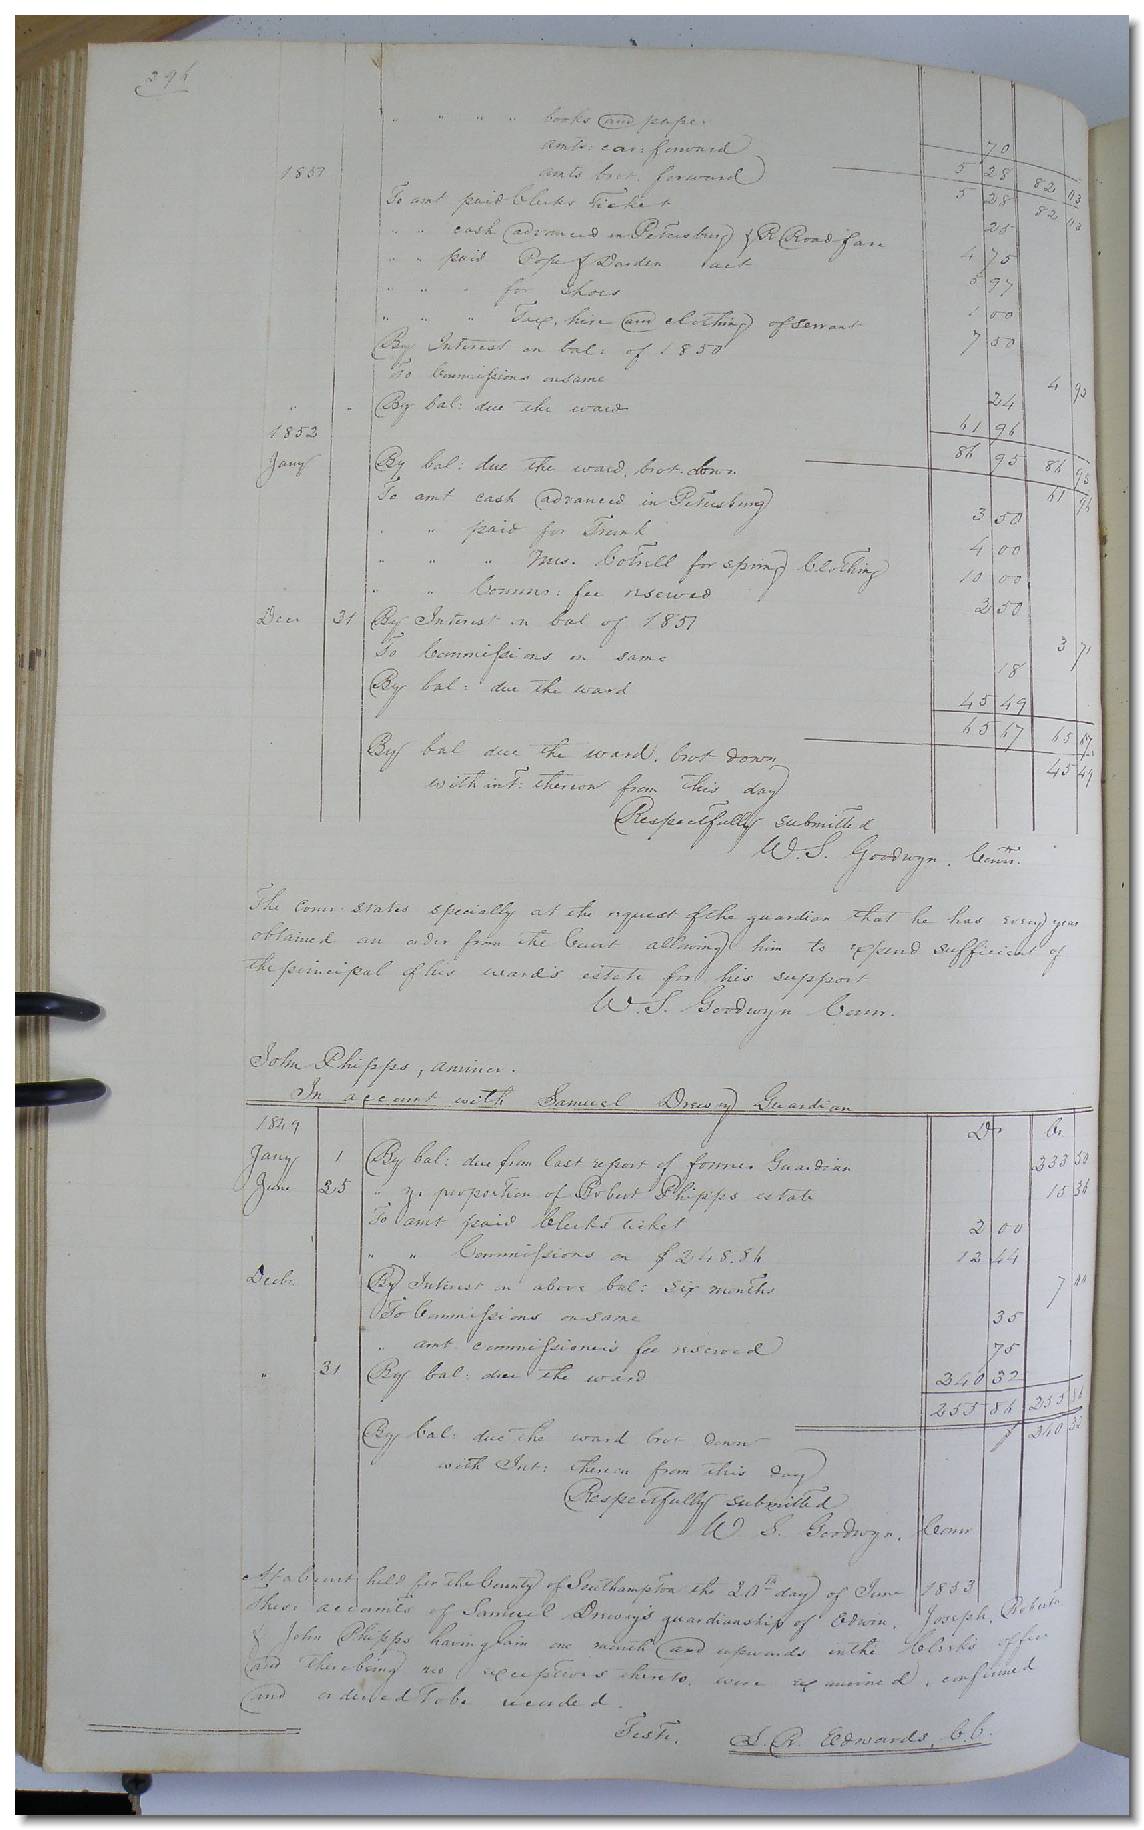 296
" " " " books and paper 70
amts: car: forward 5 28 82 03
1851 amts brot. forward 5 28 82 03
To amt paid Clerks Ticket 25
" " cash advanced in Petersburg & R Road fare 4 75
" " paid Pope & Darden acct 5 97
" " " for Shoes 1 00
" " " Tax, hire and clothing of servant 7 50
By Interest on bal: of 1850 4 92
To Commissions on same 24
" " By bal: due the ward 61 96
86 95 86 95
1852
Jany By bal: due the ward, brot. down 61 96
To amt cash advanced in Petersburg 3 50
" " paid for Trunk 4 00
" " " Mrs. Cotrill for spring Clothing 10 00
" " Commrs: fee reserved 2 50
Decr 31 By Interest on bal of 1851 3 71
To Commissions on same 18
By bal: due the ward 45 49
65 67 65 67
By bal due the ward, brot down 45 49
with int: thereon from this day
Respectfully submitted
W. S. Goodwyn. Comr.
The comr. states specially at the request of the guardian that he has every year
obtained an order from the Court allowing him to expend sufficient of
the principal of his ward's estate for his support
W. S. Goodwyn Comr.
John Phipps, a minor.
In account with Samuel Drewry Guardian
1849 Dr Cr
Jany 1 By bal: due from last report of former Guardian 233 50
June 25 " yr proportion of Robert Phipps estate 15 36
To amt paid Clerks ticket 2 00
" " Commissions on $248.86 12 44
Decbr By Interest on above bal: six months 7 00
To Commissions on same 35
" amt commissioner's fee reserved 75
" 31 By bal: due the ward 240 32
255 86 255 86
By bal: due the ward brot down $ 240 32
with Int: thereon from this day
Respectfully submitted
W S. Goodwyn, Comr
At a Court held for the County of Southampton the 20th day of June 1853
These accounts of Samuel Drewry's guardianship of Edwin, Joseph, Roberta
& John Phipps having lain one month and upwards in the Clerk's office
and there being no exceptions thereto, were examined, confirmed
and ordered to be recorded.
Teste. L. R. Edwards, C.C.